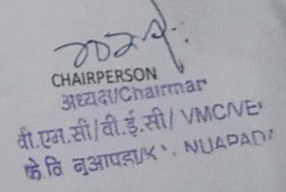 CHAIRPERSON
अध्यक्ष/Chairman
वी.एम.सी/वी.ई.सी/ VMC/VE
के वि नुआपडा/K V. NUAPADA